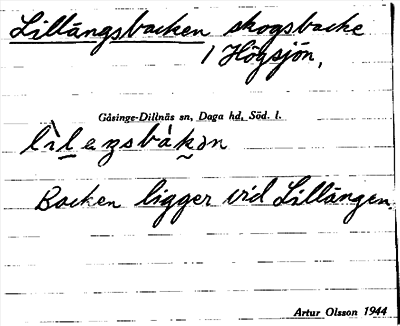 Lillängsbacken skogsbacke
i Högsjön,
Gåsinge-Dillnäs sn, Daga hd, Söd. l.
Backen ligger vid Lillängen.
Artur Olsson 1944